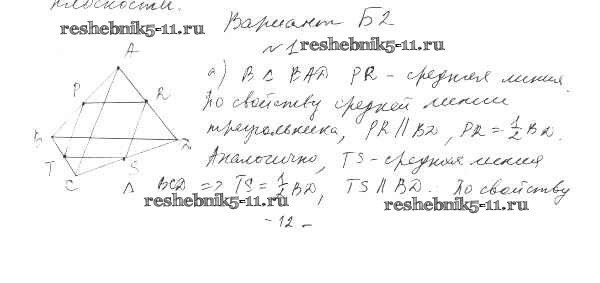 плоскости.
reshebnik5-11.ru Вариант Б2
№1 reshebnik5-11.ru
A
а) В △ BAD PR - средняя линия.
P R
По свойству средней линии
треугольника, PR || BD, PR = 1/2 BD.
B D
Аналогично, TS - средняя линия
T S
C
△ BCD => TS = 1/2 BD, TS || BD. По свойству
reshebnik5-11.ru reshebnik5-11.ru
- 12 -